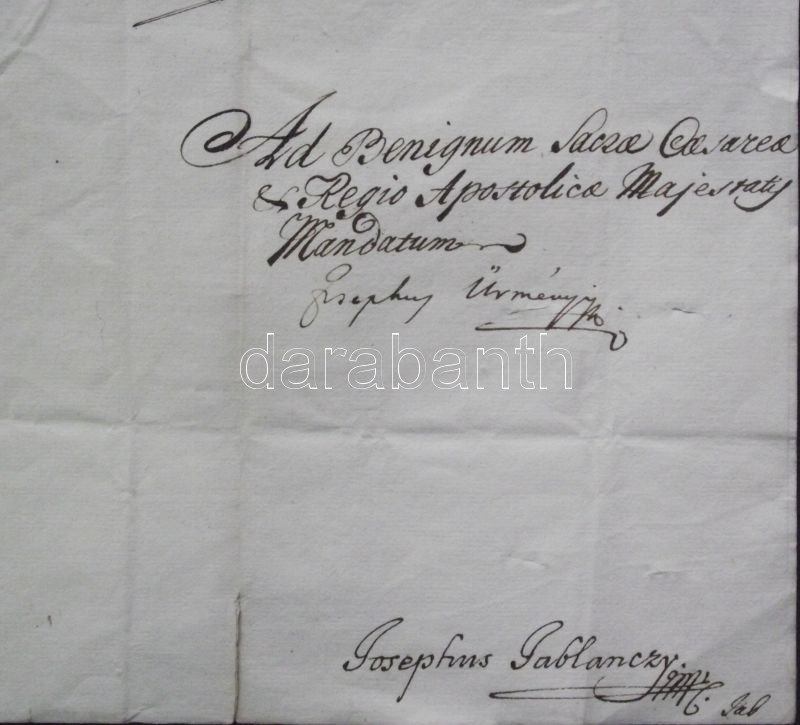 Ad Benignum Sacræ Cæsareæ
& Regio Apostolicæ Majestatis
Mandatum
Josephus Ürményi
darabanth
Josephus Jablanczy